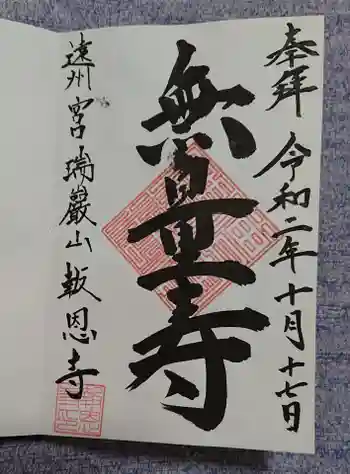 奉拜 令和二年十月十七日
無量寿
遠州 宮口 瑞巖山 報恩寺